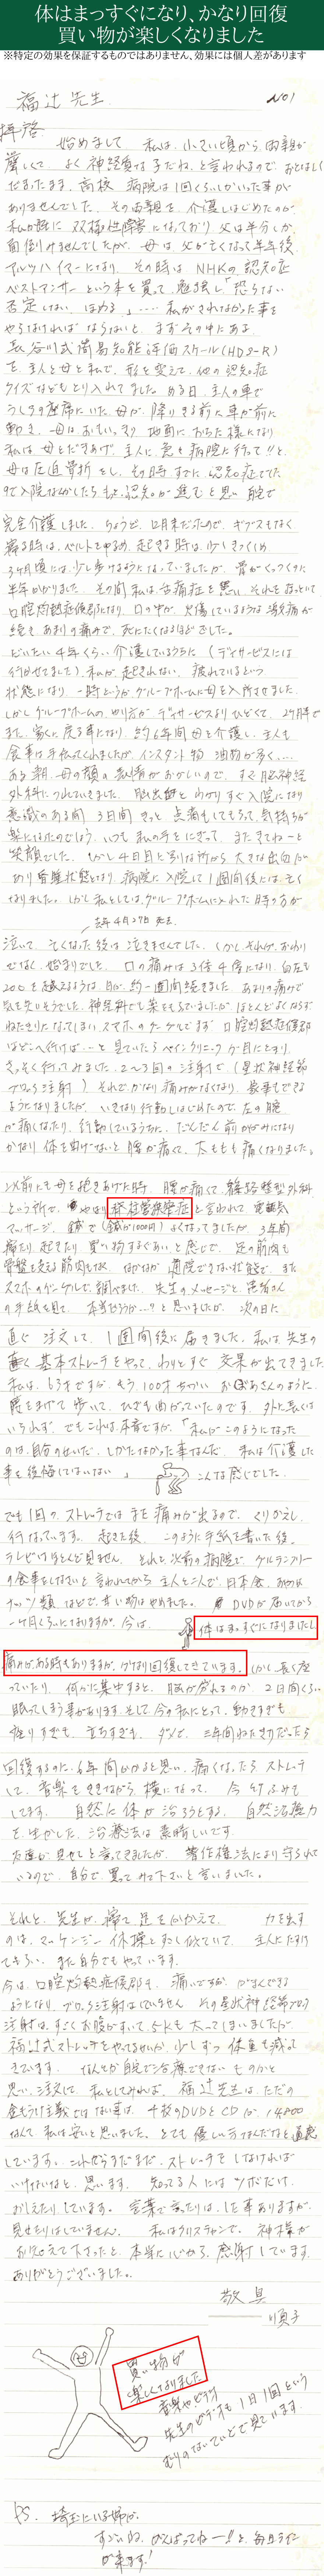 体はまっすぐになり、かなり回復
買い物が楽しくなりました
※特定の効果を保証するものではありません、効果には個人差があります
福辻先生 No1
拝啓
始めまして 私は、小さい頃から、両親が
厳しくて、よく神経質な子だね、と言われるので、おとなしく
だまったまま、高校 病院は1回くらいしかいった事が
ありませんでした。その両親を、介護しはじめたのが
私が既に 双極性障害になっており、父は半分しか
面倒みませんでしたが、母は父が亡くなって半年後、
アルツハイマーになり、その時は、NHKの認知症
ベストアンサーという本を買って、勉強し「怒らない
否定しない、ほめる」… 私がされなかった事を
やらなければならないと、まずその中にある
長谷川式簡易知能評価スケール(HDS-R)
を、主人と母と私で、形を変えて、他の認知症
クイズなどもとり入れてました。ある日、主人の車で
うしろの座席にいた、母が、降りる前に車が前に
動き、母はおもいっきり 地面に おちた様になり
私は母をだきあげ、主人に、急を病院に行って!!と、
母は圧迫骨折をし、その時すでに、認知症でした
完全介護しました。ちょうど、12月末だったので、ギブスもなく
寝る時は、ベルトをゆるめ、起きる時は、少しきつくしめ
3ヶ月後には、少し歩けるようになっていましたが、骨がくっつくのに
半年かかりました。その間私は、舌痛症を患い、それをほっといて
口腔灼熱症候群になり、口の中が、火傷しているような激痛が
続き、あまりの痛みで、死にたくなるほどでした。
だいたい4年くらい介護しているうちに、(デイサービスには
行かせてました)私が起きれない、疲れているという
状態になり 一時どうかグループホームに母を入所させました。
しかしグループホームの、やり方が、デイサービスよりひどくて、2ヶ月半で
また、家に、戻る事になり、約6年間母を介護し、主人も
食事は手伝ってくれましたが、インスタント物、油物が多く、…
ある朝、母の顔の表情がおかしいので、すぐ脳神経
外科に、つれていきました。脳出血とわかりすぐ入院になり
意識のある間、3日間 きっと 点滴もしてもらって、気持ちが
楽になったのでしょう。いつも私の手をにぎって、またきてねーと
笑顔でした。しかし4日目に別な所から、大きな出血が
あり昏睡状態となり、病院に入院して1週間後には、亡く
なりました。しかし私としては、グループホームに入れた時の方が
去年4月27日 死去
泣いて、亡くなった後は泣きませんでした。しかしそれが、おわり
でなく、始まりでした。口の痛みは3倍4倍になり、血圧も
200を越えるような日が、約一週間続きました。あまりの痛みで
気を失いそうでした。神経科でも薬をもらっていましたが、ほとんどよくならず
ねたきりになってしまい、スマホのグーグルでまず口腔灼熱症候群
はどこへ行けば…と見ていたらペインクリニックが目にとまり
さっそく行ってみました。2~3回の注射で、(星状神経節
ブロック注射)それでかなり痛みがなくなり、食事もできる
ようになりましたが、いきなり行動しはじめたので、左の腕
が痛くなったり、行動しているうちに、だんだん前かがみになり
かなり体を曲げないと 腰が痛くて、太ももも痛くなりました。
以前にも母を抱きあげた時、腰が痛くて、整形外科
という所で、やはり 脊柱管狭窄症 と言われて、電気
マッサージ、鍼で(鍼が1000円) よくなってましたが、3年間
寝たり起きたり、買い物するくらい、と感じで、足の筋肉も
骨盤を支える筋肉もなく、なかなか通院できない状態で、また
スマホのグーグルで、調べました。先生のメッセージと、患者さん
の手紙を見て、本当だろうか…?と思いましたが、次の日に
直ぐ 注文して、1週間後に届きました。私は、先生の
基本ストレッチをやって、わりとすぐ、効果が出てきました
私は、63才ですが、もう、100才ちかい おばあさんのように
腰をまげて歩いて、ひざも曲がっていたのです。外に長くは
いられず、でもこれは、本音ですが、「私がこのようになった
のは、自分のせいだ、しかたなかった事なんだ、私は介護した
事を後悔してはいない」 こんな感じでした。
でも1回の、ストレッチではまだ痛みが出るので、くりかえし
行なっています。起きた後、このように手紙を書いた後、
テレビはほとんど見ません。それと以前の病院で、グルテンフリー
の食事をしなさいと言われてから 主人と二人で、日本食、おかしは
ナッツ類などで、甘い物はやめました。DVDが届いてから
一ヶ月くらいになりますが、今は、 体はまっすぐになりましたし
痛みが、ある時もありますが、かなり回復してきています。しかし長く座
っていたり、何かに集中すると、脳が疲れるのか、2日間くらい
眠ってしまう事があります。そして、今の私にとって、動きすぎも
座りすぎも、立ちすぎも、ダメで、三年間ねたきりだったら
回復するのに、6年間かかると思い、痛くなったら、ストレッチ
して、音楽をききながら、横になって、今、竹ふみも
してます。自然に体が治ろうとする、自然治癒力
を生かした、治療法は素晴しいです。
友達が、見せてと言ってきましたが、著作権法により守られて
いるので、自分で買ってみて下さいと言いました。
それと、先生が、寝て、足をしかえて、力を出す
のは、マッケンジー体操と少し似ていて、主人にたすけ
てもらい、また自分でもやっています。
今は、口腔灼熱症候群も、痛いですが、がまんできる
ようになり、ブロック注射はしていません。その星状神経節ブロック
注射は、すごくお腹がすいて、5kも太ってしまいましたが
福辻式ストレッチをやってるせいか、少しずつ 体重も減って
きています。なんとか自宅で治療できないものかと
思い、注文して、私としてみれば、福辻先生は、ただの
金もうけ主義ではない事は、4枚のDVDとCDが、14,800
なんて私は安いと思いました。とても優しい方なんだなと痛感
しています。これからまだまだ、ストレッチをしなければ
いけないなと、思います。知ってる人にはツボだけ、
おしえたりしています。言葉で言ったりは、した事ありますが、
見せたりはしていません。私はクリスチャンで、神様が
お与えて下さったと、本当に心から、感謝しています。
ありがとうございました。
敬具
順子
買い物が
楽しくなりました
音楽やピラティ
先生のビデオも1日1回という
むりのないていどで見ています。
P.S. 埼玉にいる姉が、
すごいね、がんばってねー!!と、毎日ライン
が来ます!